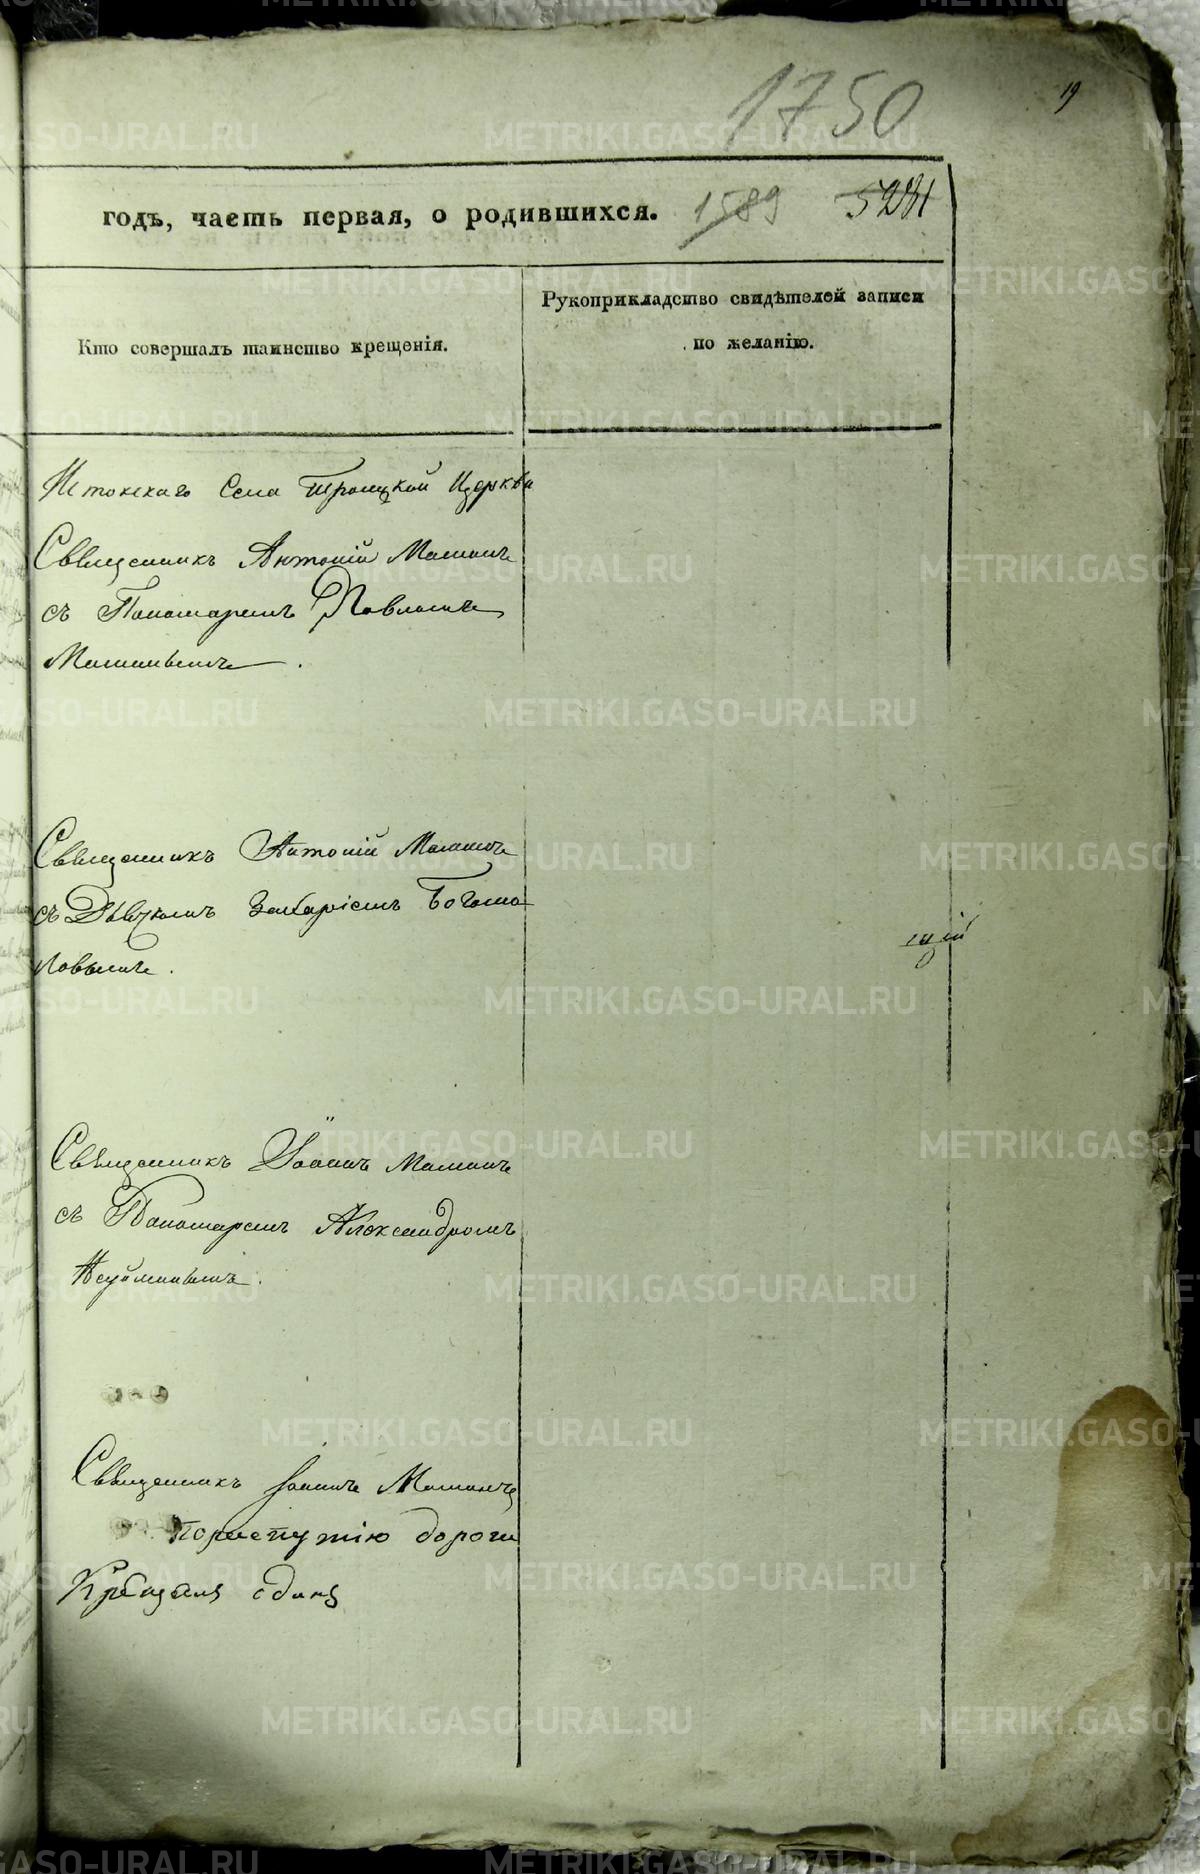 1750
19
годъ, часть первая, о родившихся. 1589 5281
Кто совершалъ таинство крещенія.
Рукоприкладство свидѣтелей записи
по желанію.
Истокскаго Села Троицкой Церкви
Священникъ Антоній Маминъ
съ Пономаремъ Павломъ
Маминымъ.
Священникъ Антоній Маминъ
съ Дьячкомъ Захаріемъ Богомо
ловымъ.
щій
Священникъ Іоаннъ Маминъ
съ Пономаремъ Александромъ
Неуйминымъ.
Священникъ Іоаннъ Маминъ
дороги
Крещалъ одинъ
METRIKI.GASO-URAL.RU